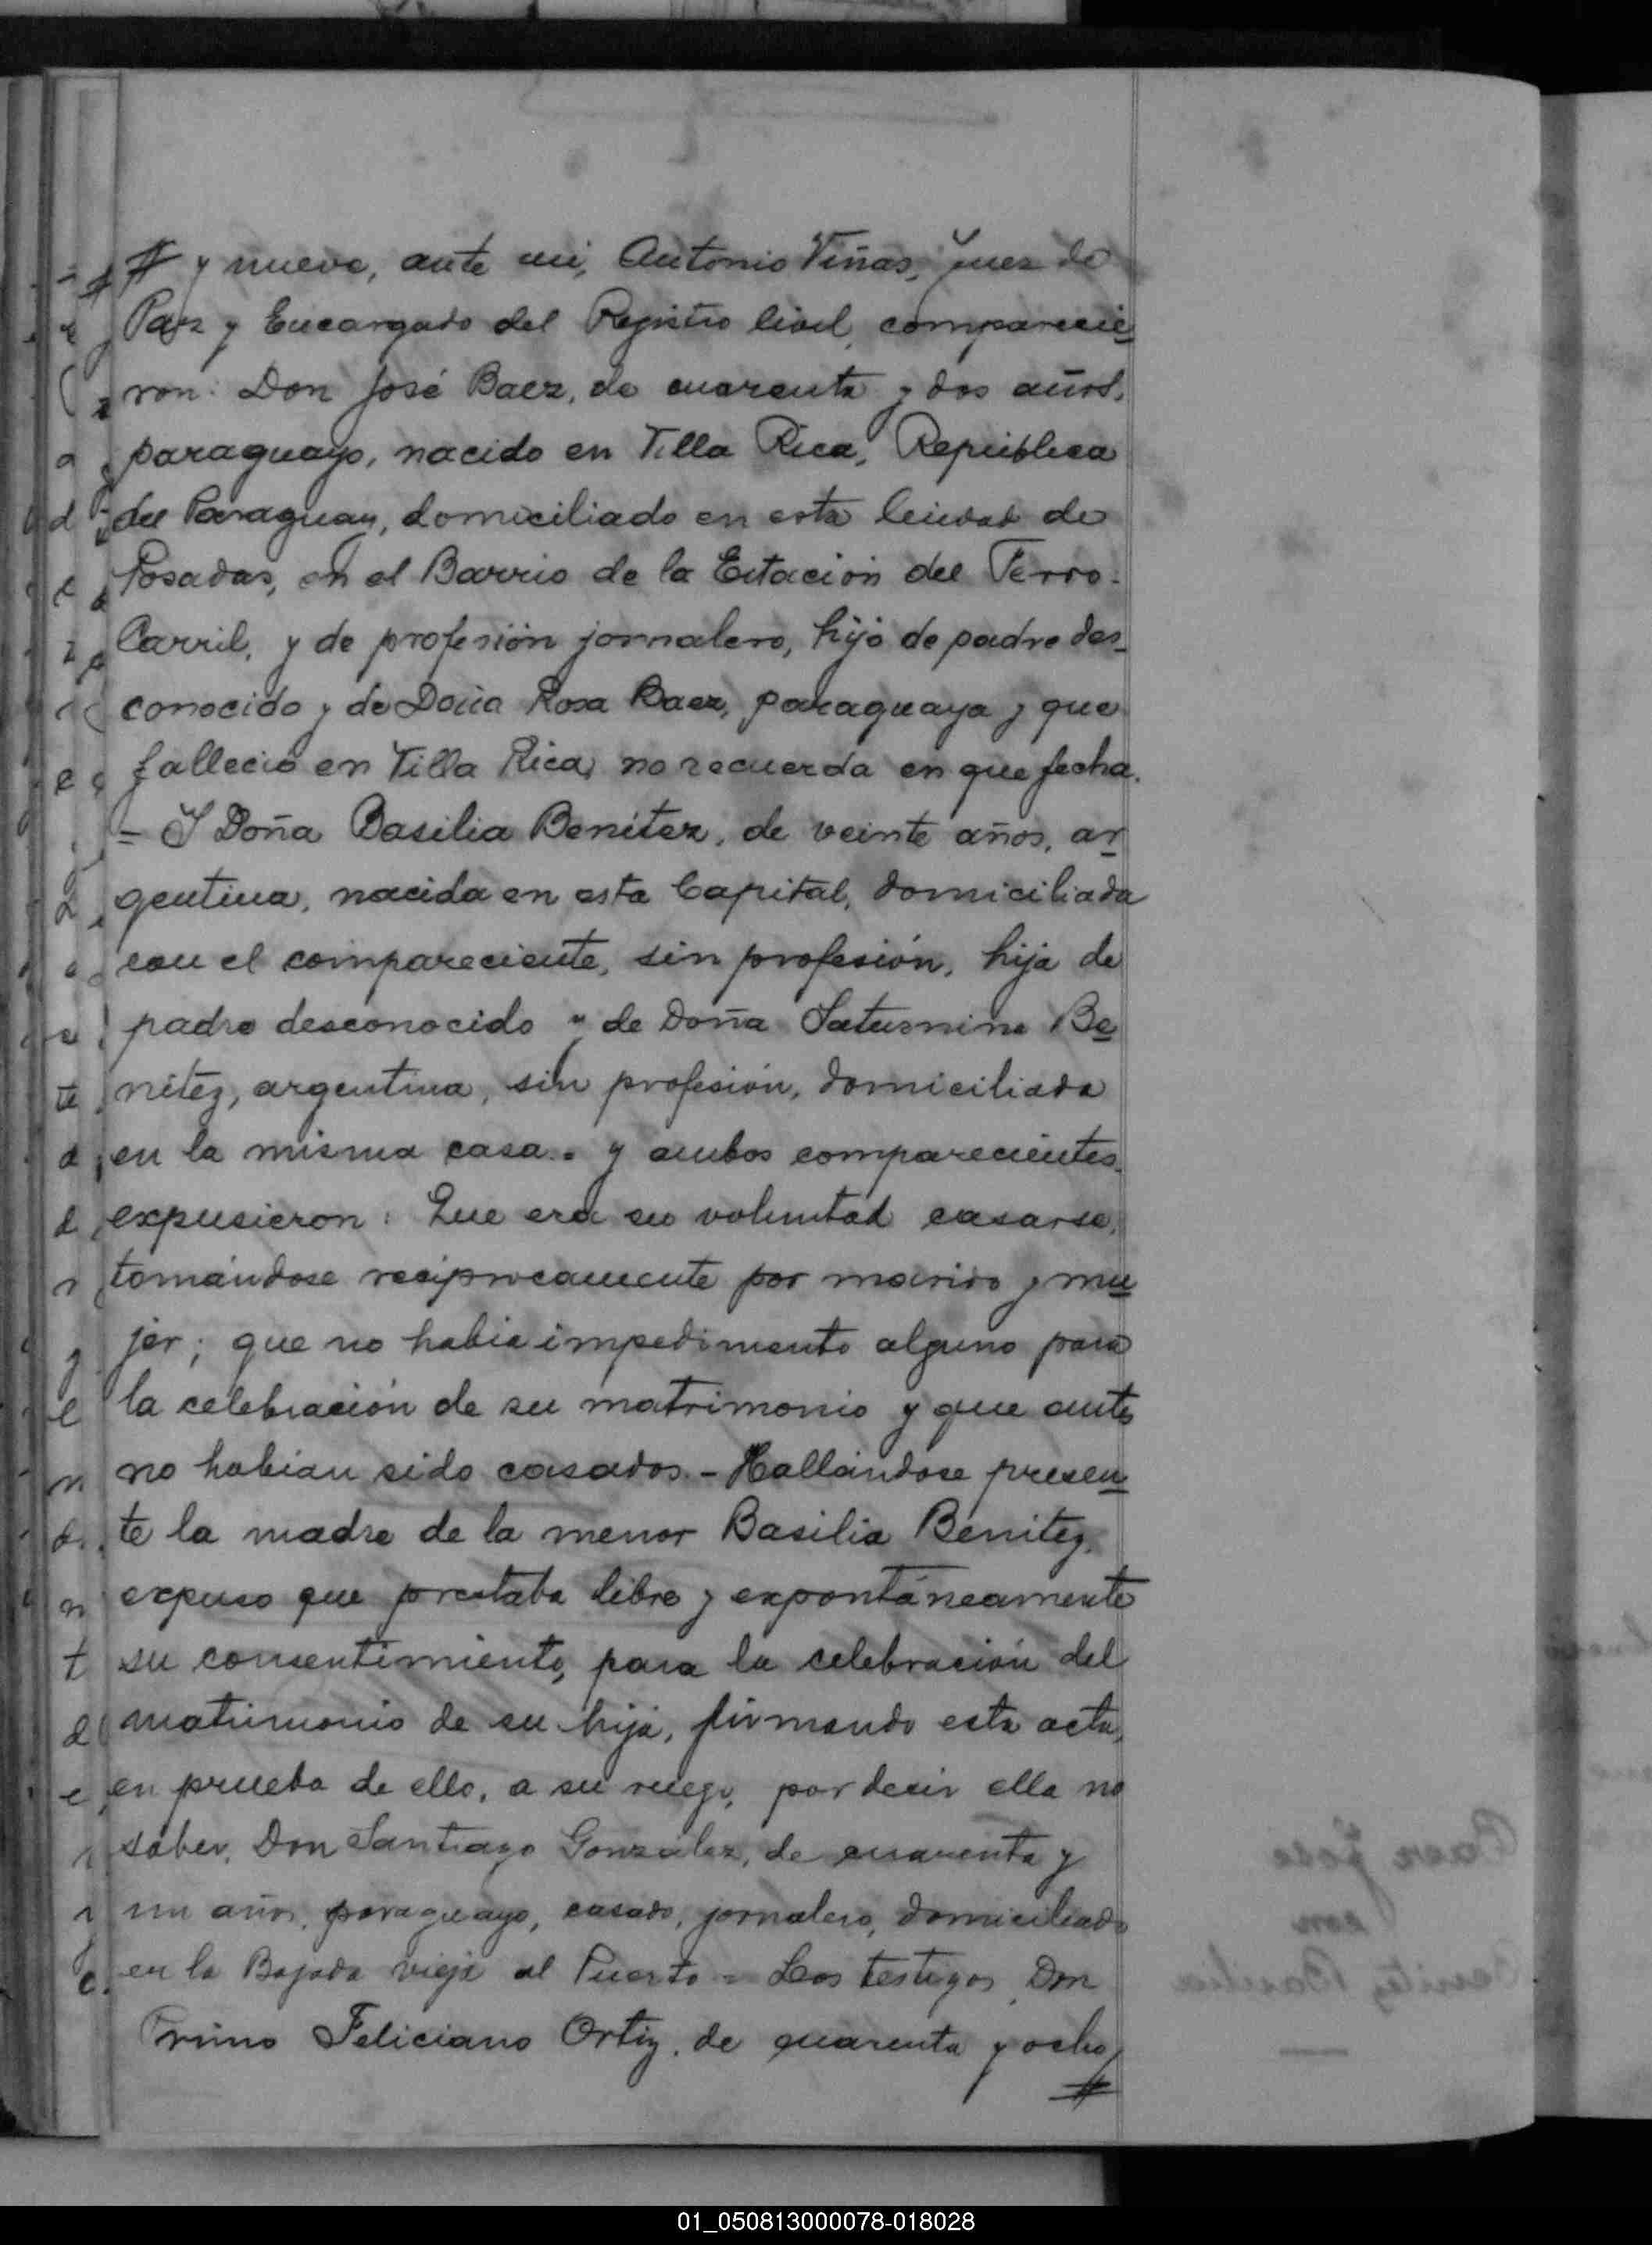 # y nueve, ante mi, Antonio Viñas, Juez de
Paz y Encargado del Registro Civil, comparecie
ron: Don José Baez, de cuarenta y dos años,
paraguayo, nacido en Villa Rica, República
del Paraguay, domiciliado en esta Ciudad de
Posadas, en el Barrio de la Estación del Ferro-
Carril, y de profesión jornalero, hijo de padre des_
conocido y de Doña Rosa Baez, paraguaya y que
falleció en Villa Rica, no recuerda en que fecha.
= Y Doña Basilia Benítez, de veinte años, ar
gentina, nacida en esta Capital, domiciliada
con el compareciente, sin profesión, hija de
padre desconocido y de Doña Saturnina Be
nítez, argentina, sin profesión, domiciliada
en la misma casa. = y ambos comparecientes
expusieron: Que era su voluntad casarse,
tomándose recíprocamente por marido y mu
jer; que no había impedimento alguno para
la celebración de su matrimonio y que antes
no habían sido casados. - Hallándose presen
te la madre de la menor Basilia Benítez,
expuso que prestaba libre y expontáneamente
su consentimiento, para la celebración del
matrimonio de su hija, firmando esta acta,
en prueba de ello, a su ruego, por decir ella no
saber, Don Santiago González, de cuarenta y
un años, paraguayo, casado, jornalero, domiciliado
en la Bajada vieja al Puerto = Los testigos, Don
Primo Feliciano Ortiz, de cuarenta y ocho
#
01_050813000078-018028